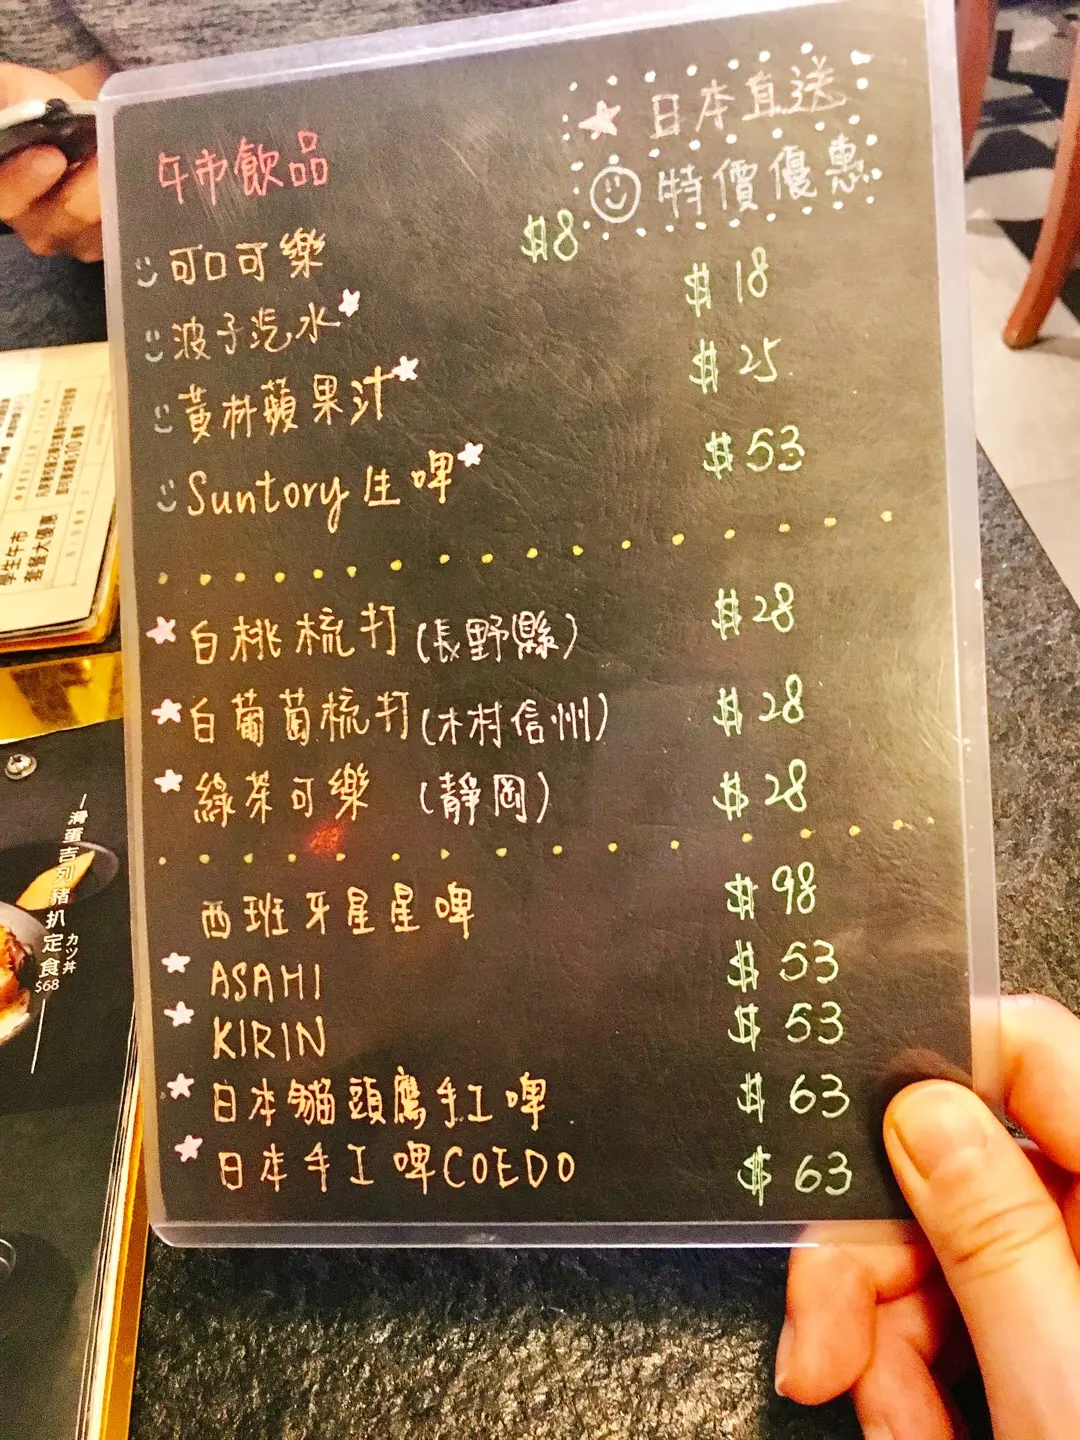 日本直送
特價優惠
午市飲品
可口可樂 $8
波子汽水 $18
黃林蘋果汁 $25
Suntory 生啤 $53
白桃梳打 (長野縣) $28
白葡萄梳打 (木村信州) $28
綠茶可樂 (靜岡) $28
西班牙星星啤 $98
ASAHI $53
KIRIN $53
日本貓頭鷹手工啤 $63
日本手工啤COEDO $63
學生午市
套餐大優惠
滑蛋吉列豬扒定食
カツ丼
$68